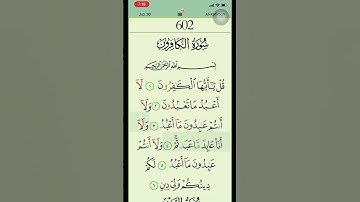 Juz 30
602
سُورَةُ الْكَافِرُونَ
بِسْمِ اللَّهِ الرَّحْمَٰنِ الرَّحِيمِ
قُلْ يَٰٓأَيُّهَا الْكَٰفِرُونَ ١ لَآ
أَعْبُدُ مَا تَعْبُدُونَ ٢ وَلَآ
أَنتُمْ عَٰبِدُونَ مَآ أَعْبُدُ ٣ وَلَآ
أَنَا۠ عَابِدٌ مَّا عَبَدتُّمْ ٤ وَلَآ أَنتُمْ
عَٰبِدُونَ مَآ أَعْبُدُ ٥ لَكُمْ
دِينُكُمْ وَلِيَ دِينِ ٦